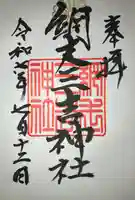 奉拝
網走三吉神社
令和七年七月十三日